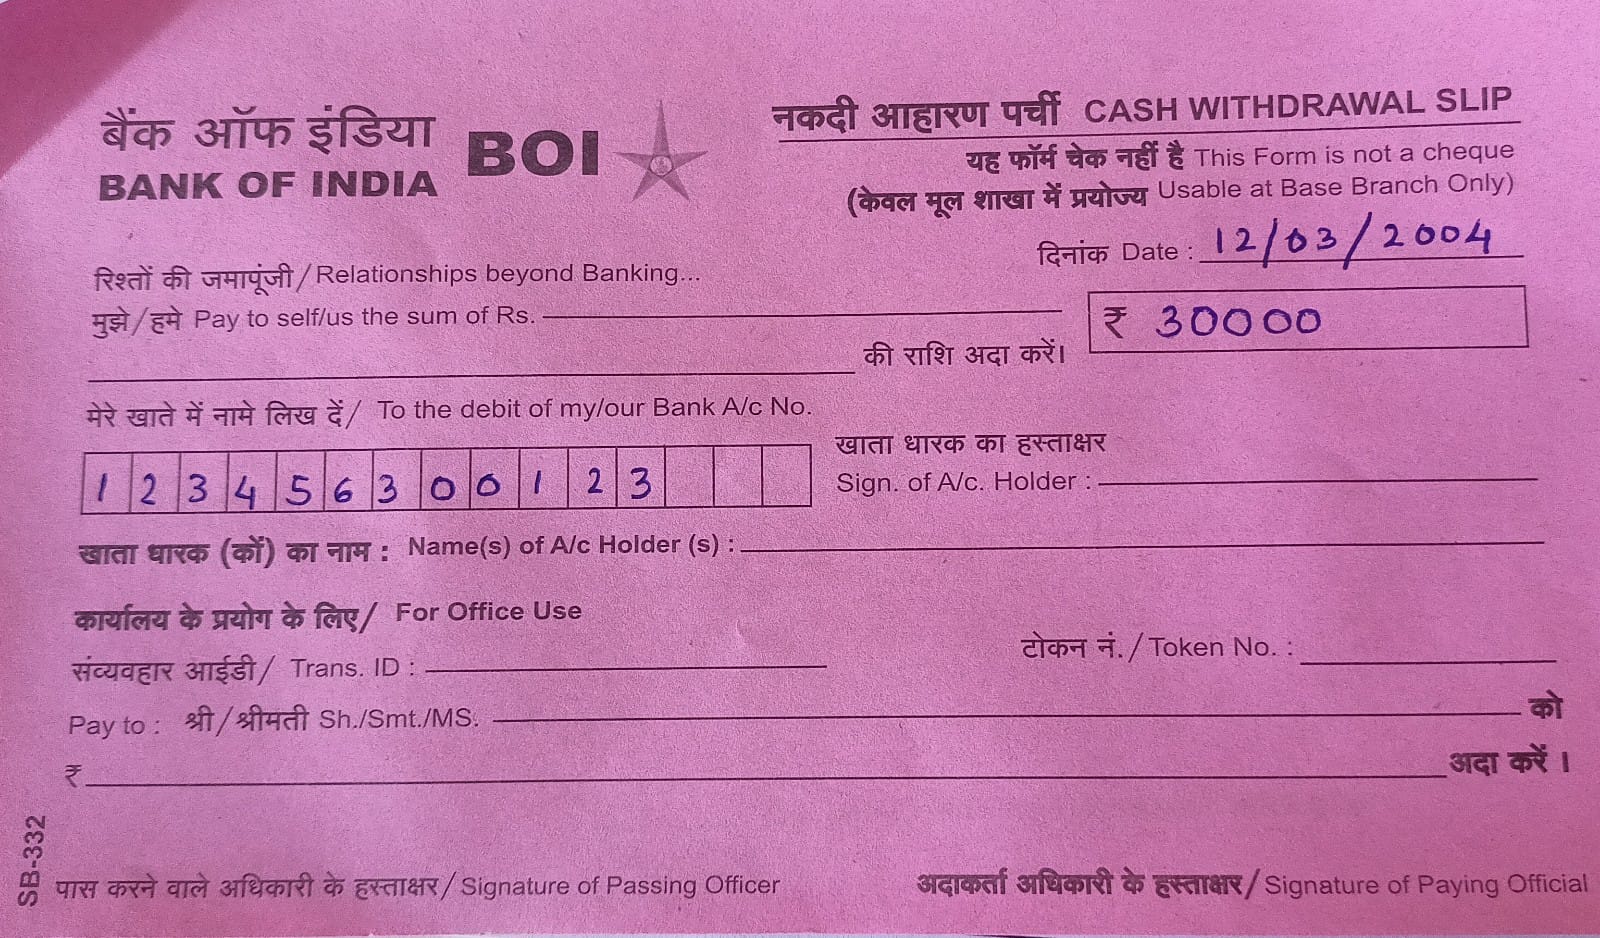 बैंक ऑफ इंडिया BOI
BANK OF INDIA
नकदी आहारण पर्ची CASH WITHDRAWAL SLIP
यह फॉर्म चेक नहीं है This Form is not a cheque
(केवल मूल शाखा में प्रयोज्य Usable at Base Branch Only)
दिनांक Date : 12/03/2004
रिश्तों की जमापूंजी/Relationships beyond Banking...
मुझे/हमे Pay to self/us the sum of Rs.
₹ 30000
की राशि अदा करें।
मेरे खाते में नामे लिख दें/ To the debit of my/our Bank A/c No.
1 2 3 4 5 6 3 0 0 1 2 3
खाता धारक का हस्ताक्षर
Sign. of A/c. Holder :
खाता धारक (कों) का नाम : Name(s) of A/c Holder (s) :
कार्यालय के प्रयोग के लिए/ For Office Use
संव्यवहार आईडी/ Trans. ID :
टोकन नं./Token No. :
Pay to : श्री/श्रीमती Sh./Smt./MS. को
₹ अदा करें ।
SB-332
पास करने वाले अधिकारी के हस्ताक्षर/Signature of Passing Officer
अदाकर्ता अधिकारी के हस्ताक्षर/Signature of Paying Official